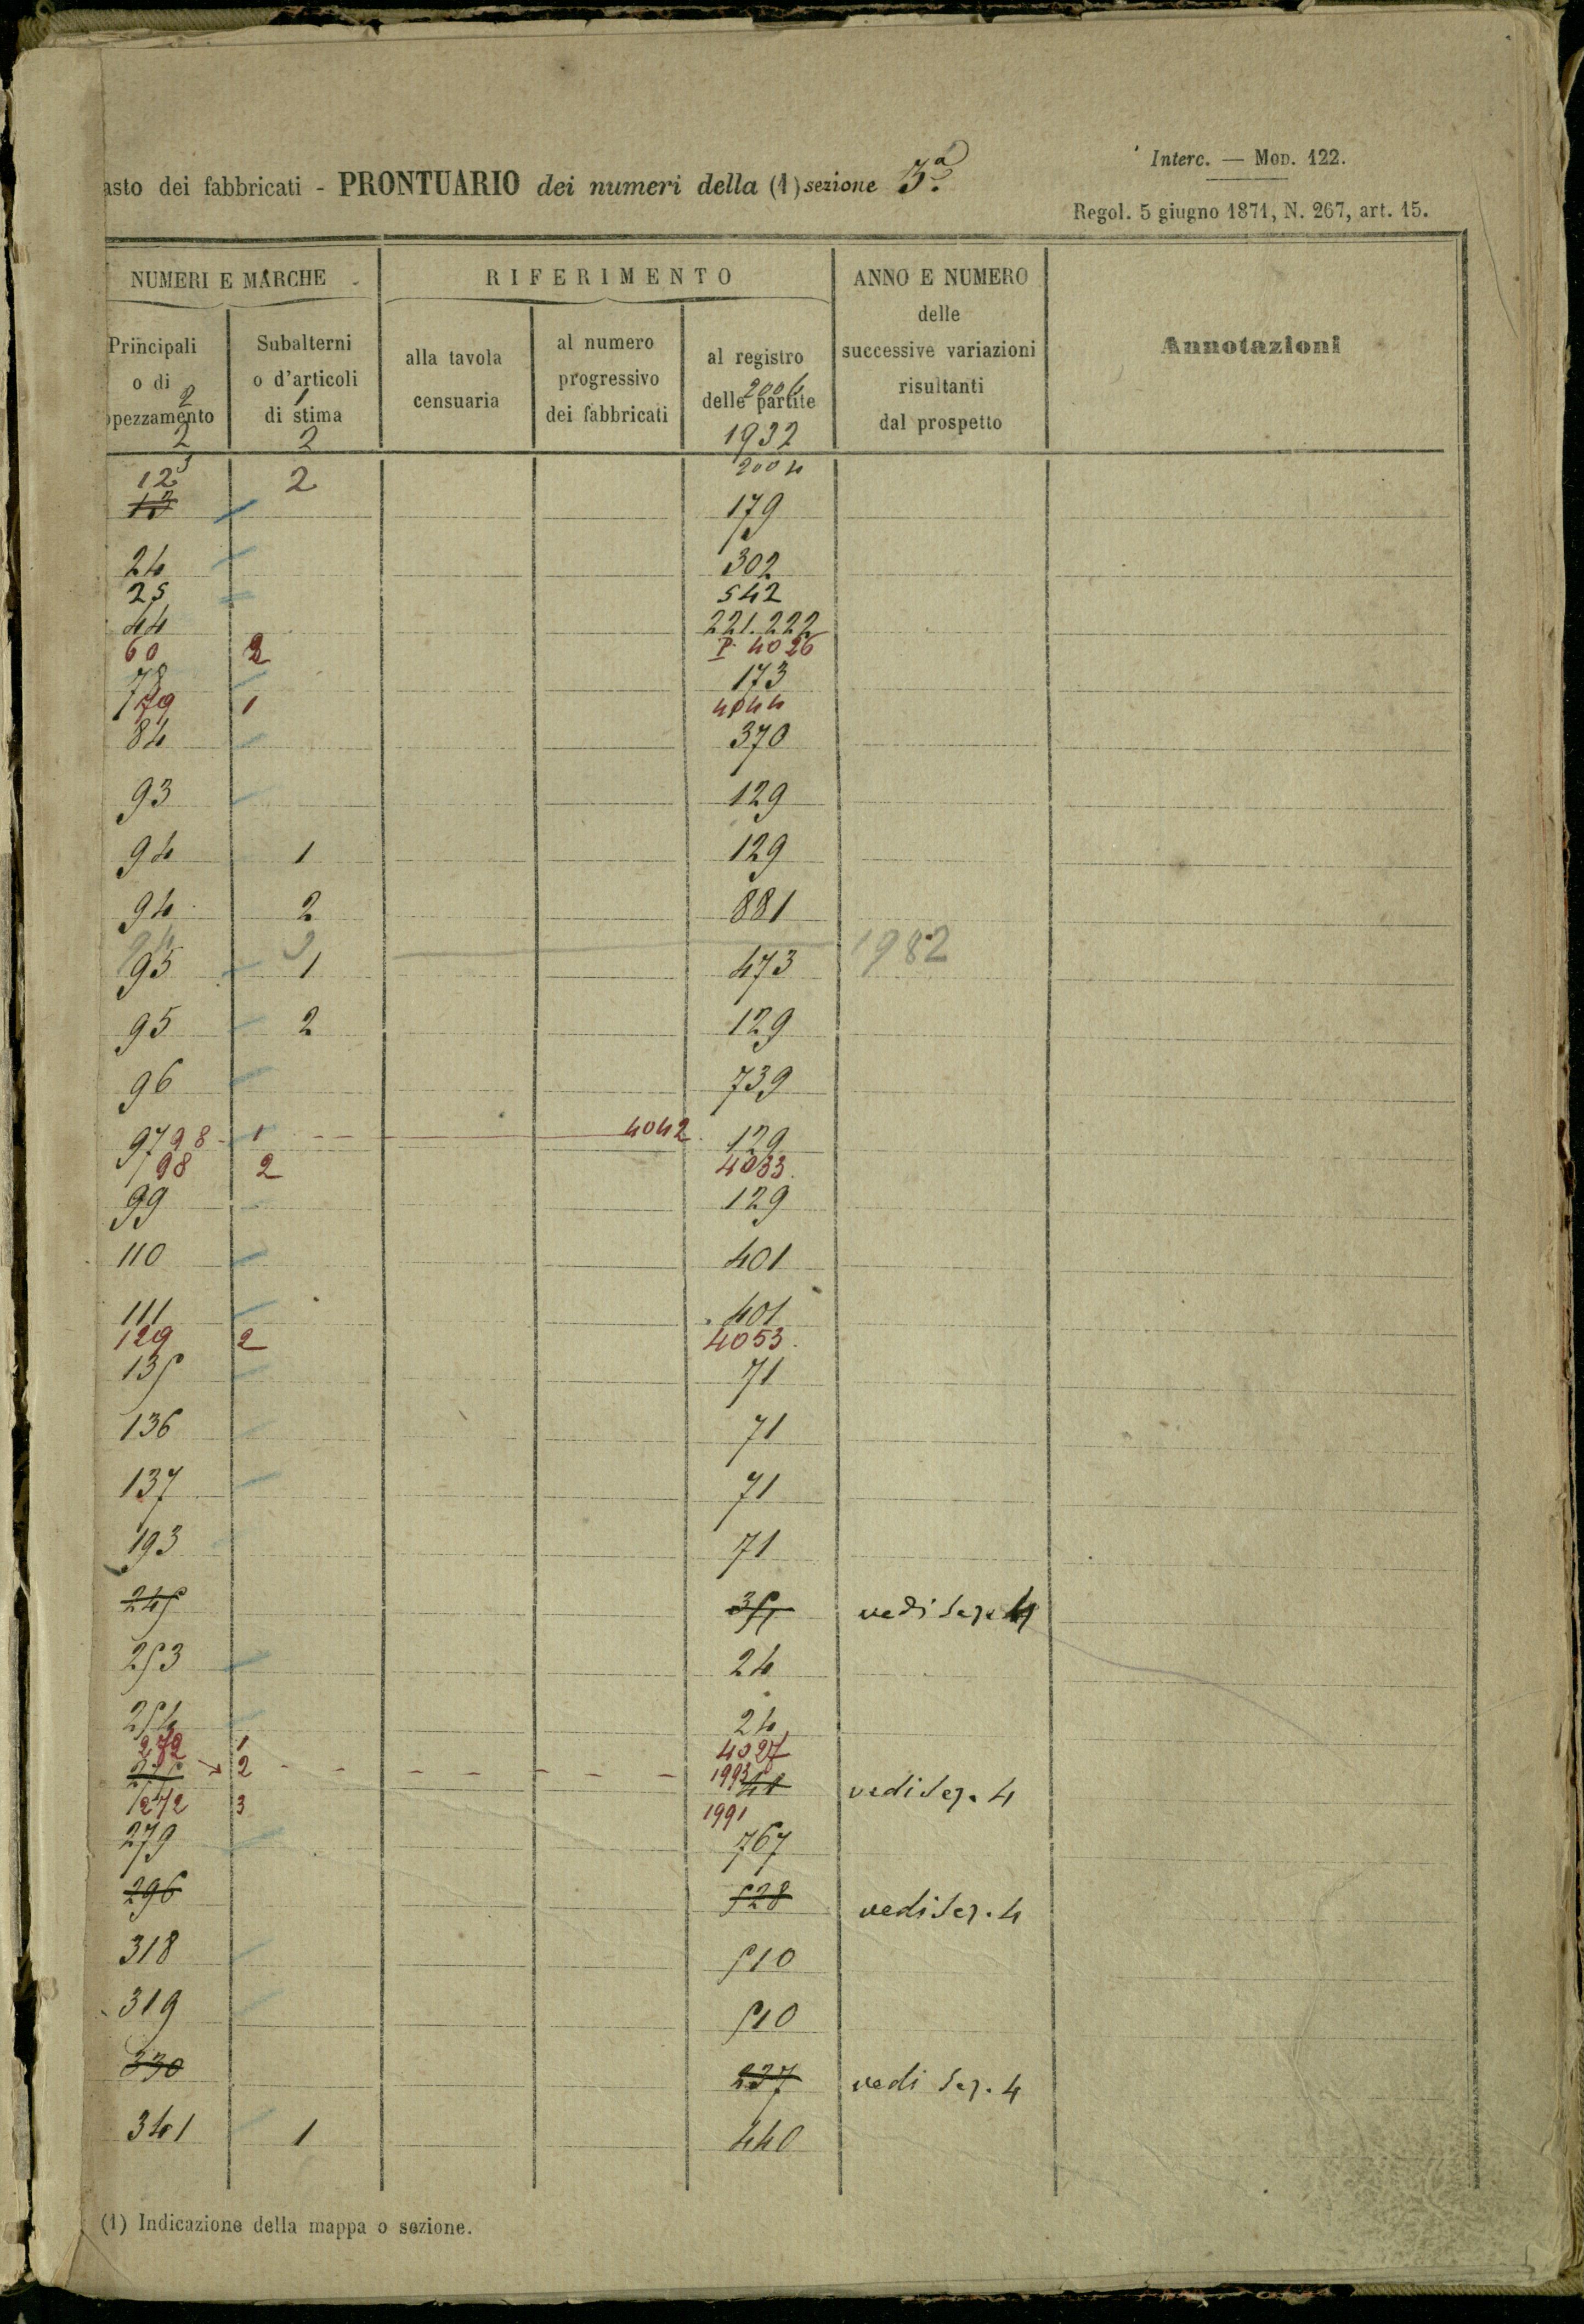 Interc. — Mod. 122.
asto dei fabbricati - PRONTUARIO dei numeri della (1) sezione 3ª
Regol. 5 giugno 1871, N. 267, art. 15.
NUMERI E MARCHE RIFERIMENTO ANNO E NUMERO delle successive variazioni risultanti dal prospetto Annotazioni
Principali o di ppezzamento Subalterni o d'articoli di stima alla tavola censuaria al numero progressivo dei fabbricati al registro delle partite
2 1 2004
2 2 1932
12 2 2004
13 179
24 302
25 542
44 221.222
60 2 P. 4026
78 173
79 1 4044
84 370
93 129
94 1 129
94 2 881
94 1982
95 1 473
95 2 129
96 739
97 98 1 4042 129
98 2 4033
99 129
110 401
111 401
129 2 4053
135 71
136 71
137 71
193 71
245 vedi Sez. 4
253 24
254 24
272 1 4027
2 1993 41 vedi Sez. 4
272 3 1991
279 767
296 528 vedi Sez. 4
318 510
319 510
330 237 vedi Sez. 4
341 1 440
(1) Indicazione della mappa o sezione.